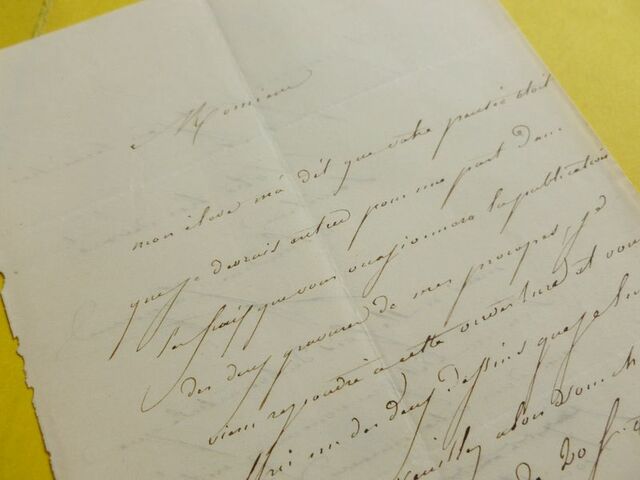 Monsieur
mon élève m'a dit que votre pensée était
que je devrais entrer pour une part dans
les frais que vous occasionnera la publication
des deux gravures de mes
viens répondre à cette ouverture et vous
un des deux dessins que je
veuillez alors
de 20 f.